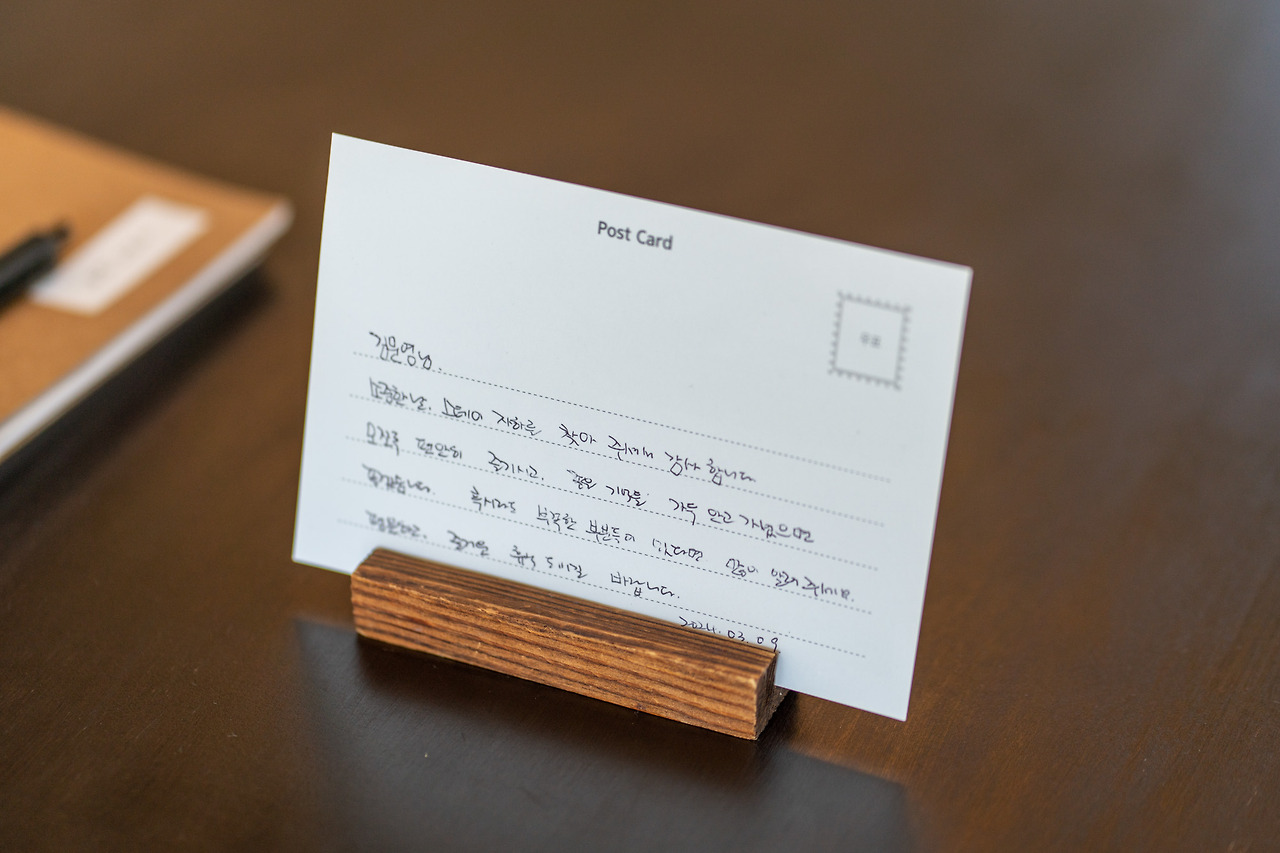 Post Card
우표
김문영님.
소중한날, 스테이 자하를 찾아 주셔서 감사합니다
오직쭉 편안히 즐기시고, 좋은 기억을 가득 안고 가셨으면
좋겠습니다. 혹시라도 부족한 부분들이 있다면 많이 알려주세요.
편안하고, 즐거운 휴식 되시길 바랍니다.
2024.03.09